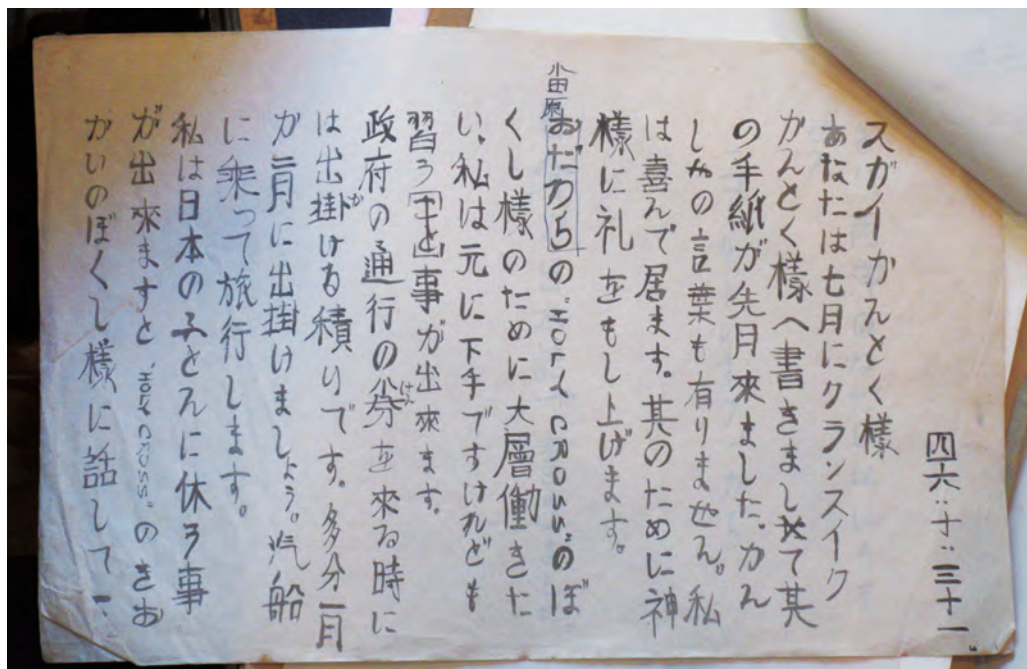 四六:十:三十一
スガイかんとく様
あなたは七月にクランスイク
かんとく様へ書きまして其
の手紙が先月來ました。かん
しゃの言葉も有りません。私
は喜んで居ます。其のために神
様に礼をもし上げます。
小田原
おだわらの "HOLY CROSS"のぼ
くし様のために大層働きた
い、私は元に下手ですけれども
習う事が出來ます。
政府の通行の券を來る時に
は出掛ける積りです。多分一月
か二月に出掛けましょう。汽船
に乘って旅行します。
私は日本の子どんに休う事
が出來ますと "HOLY CROSS"のきお
かいのぼくし様に話して下、